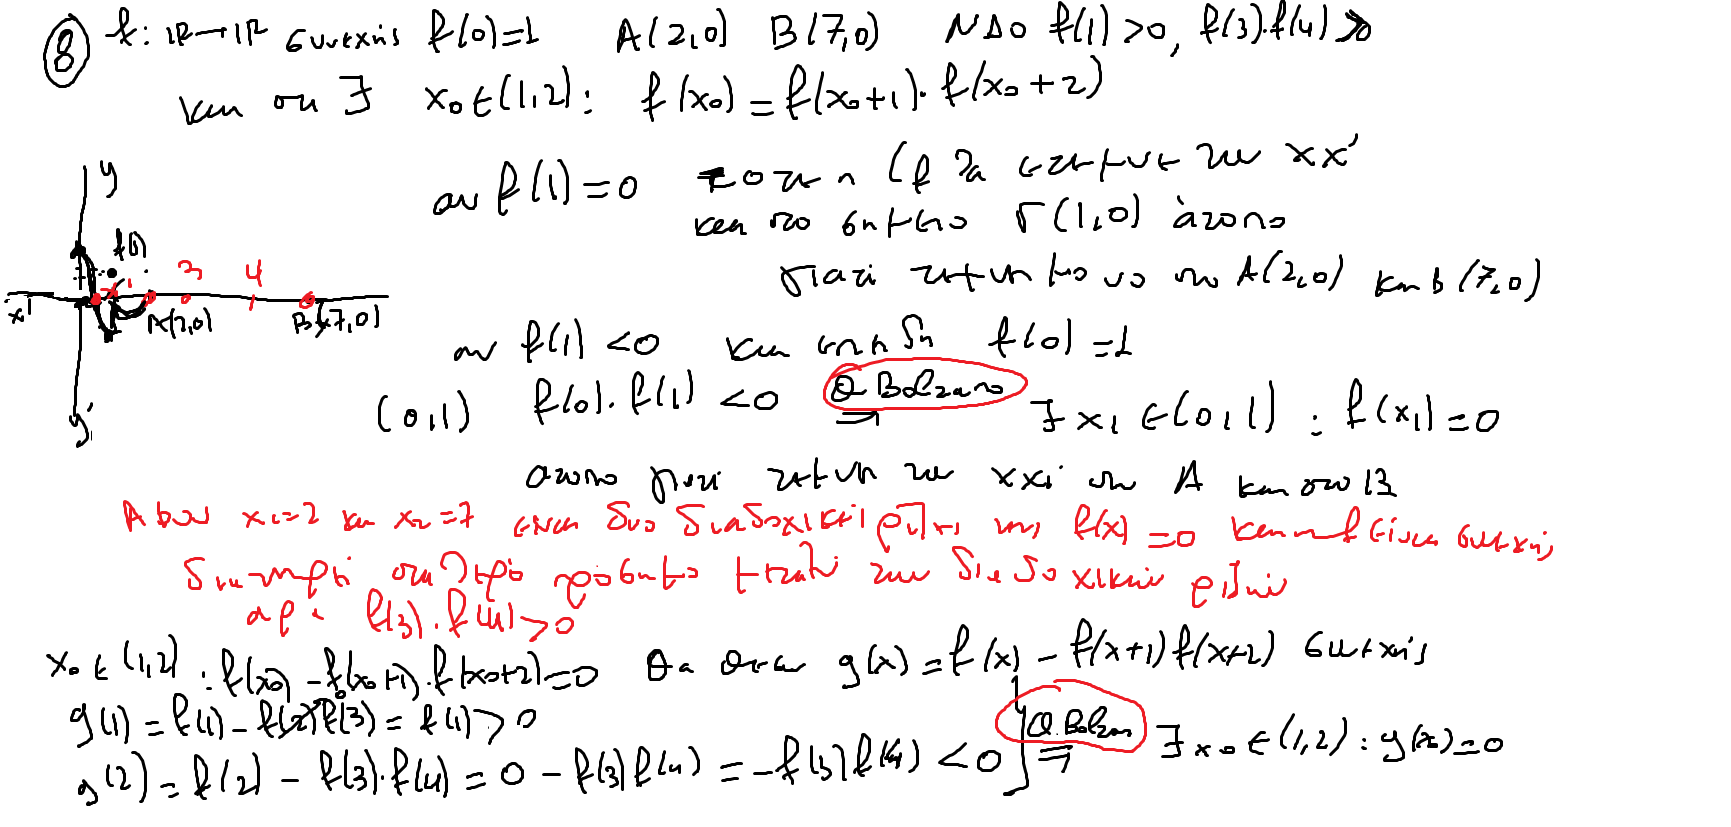 ⑧ f: ℝ→ℝ συνεχής f(0)=1 A(2,0) B(7,0) ΝΔΟ f(1)>0, f(3)·f(4)>0
και οτι ∃ x₀∈(1,2): f(x₀)=f(x₀+1)·f(x₀+2)
αν f(1)=0 τοτε η Cf θα τον xx'
και στο σημειο Γ(1,0) άτοπο
γιατί τεμνει μονο στο A(2,0) και B(7,0)
αν f(1)<0 και επειδη f(0)=1
(0,1) f(0)·f(1)<0 Θ Bolzano ⇒ ∃ x₁∈(0,1): f(x₁)=0
ατοπο γιατι τεμνει τον xx' στο A και στο B
Αφου x₁=2 και x₂=7 ειναι δυο διαδοχικές ρίζες της f(x)=0 και η f είναι συνεχης
διατηρεί σταθερό πρόσημο μεταξύ των διαδοχικών ριζών
αρα f(3)·f(4)>0
x₀∈(1,2): f(x₀)-f(x₀+1)·f(x₀+2)=0 Θα θεσω g(x)=f(x)-f(x+1)f(x+2) συνεχης
g(1)=f(1)-f(2)f(3)=f(1)>0
g(2)=f(2)-f(3)·f(4)=0-f(3)f(4)=-f(3)f(4)<0 Θ.Bolzano ⇒ ∃ x₀∈(1,2): g(x₀)=0
y
f(0)
3 4
x'
1
A(2,0) B(7,0)
y'